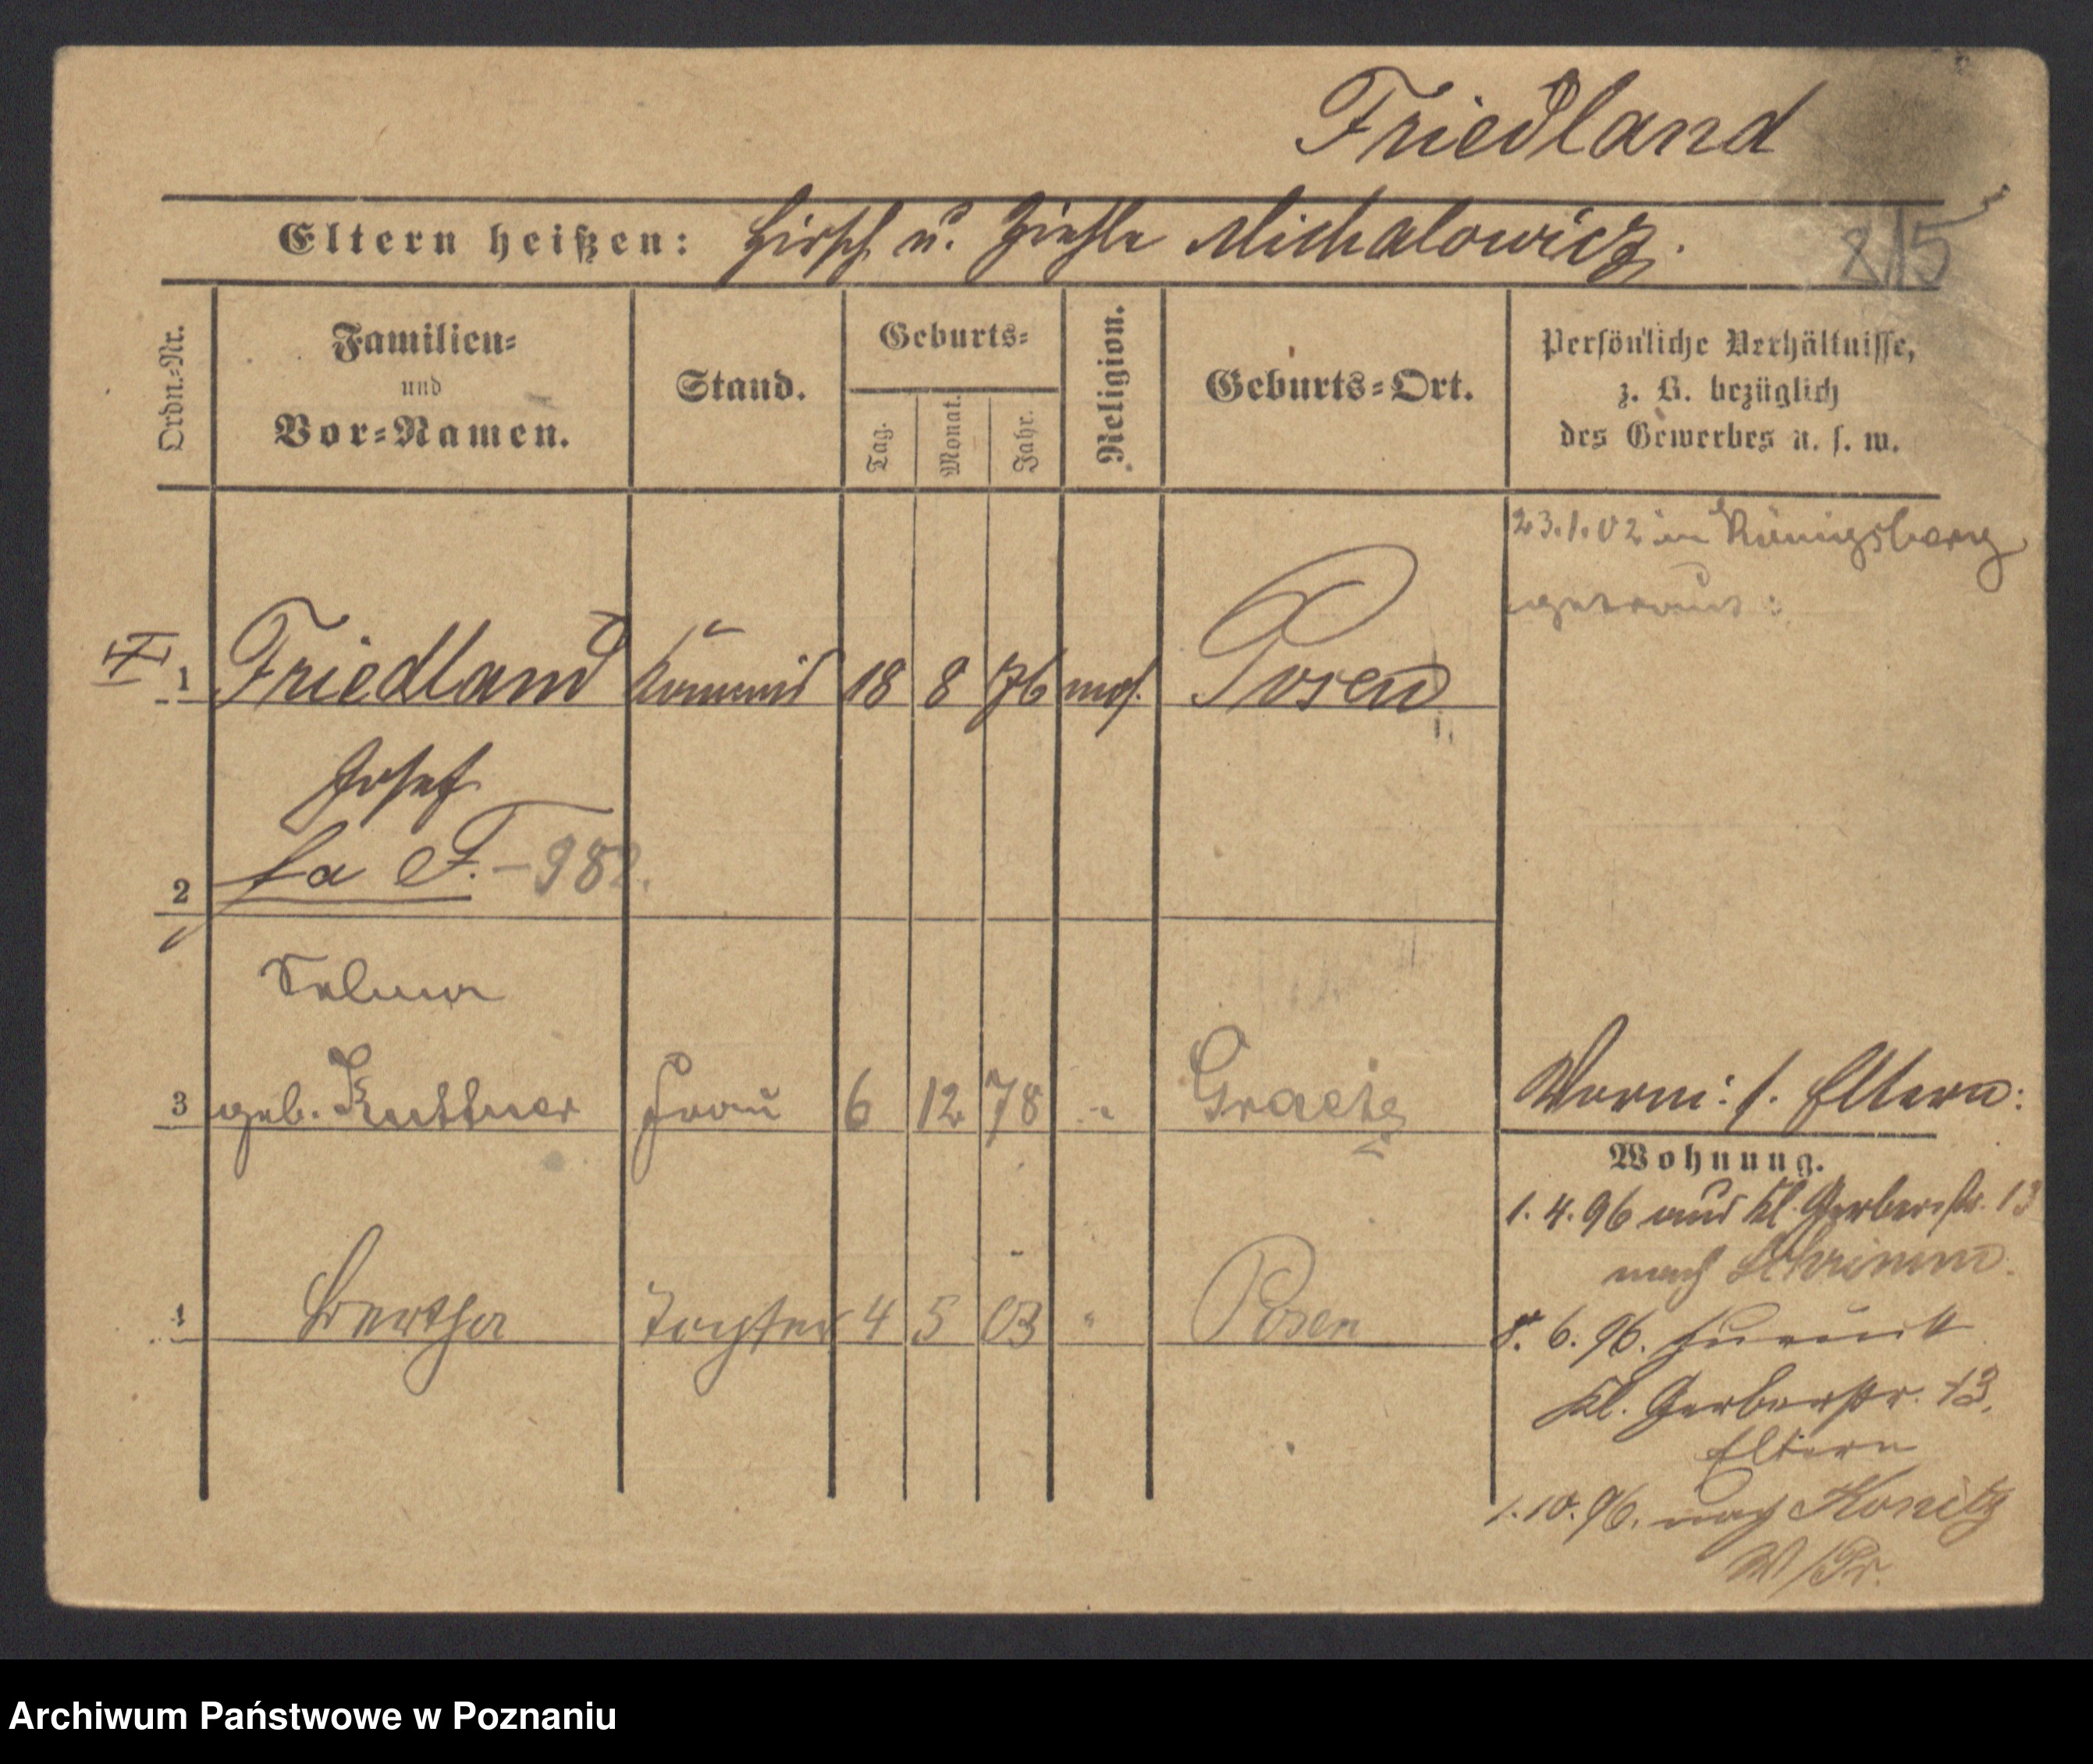 Friedland
Eltern heißen: Hirsch u. Michalowicz.
815
Ordn.-Nr.
Familien-
und
Vor-Namen.
Stand.
Geburts-
Tag.
Monat.
Jahr.
Religion.
Geburts-Ort.
Persönliche Verhältnisse,
z. B. bezüglich
des Gewerbes u. s. w.
23.1.02 in Königsberg
getraut:
1 Friedland Kommis 18 8 76 mos. Posen
Josef
2 fa F. - 982.
Selma
3 geb. Kuttner Frau 6 12 78 " Graetz
Vorm: s. Eltern:
Wohnung.
1. 4. 96 aus Kl. Gerberstr. 13
nach Schrimm.
4 Bertha Tochter 4 5 03 " Posen
8. 6. 96. zurück
Kl. Gerberstr. 13.
Eltern
1. 10. 96. nach Konitz
W/Pr.
Archiwum Państwowe w Poznaniu